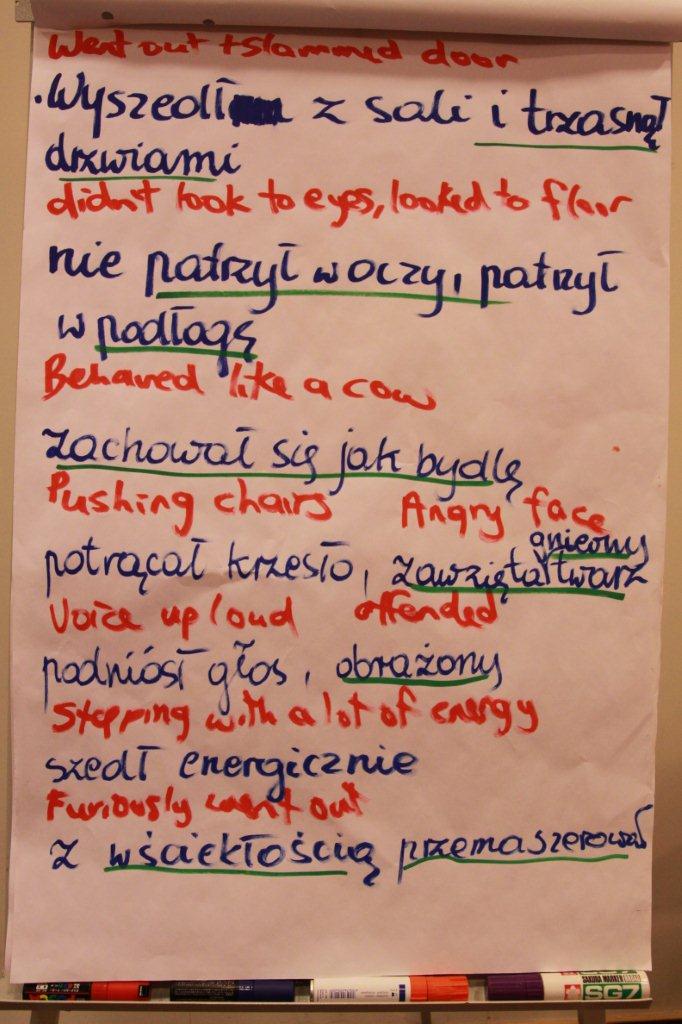 Went out + slammed door
. Wyszedł z sali i trzasnął
drzwiami
didn't look to eyes, looked to floor
nie patrzył w oczy, patrzył
w podłogę
Behaved like a cow
zachował się jak bydlę
Pushing chairs Angry face
gniewny
potrącał krzesło, zawzięta twarz
Voice up loud offended
podniósł głos, obrażony
Stepping with a lot of energy
szedł energicznie
Furiously went out
z wściekłością przemaszerował
SAKURA MARKER
SG7